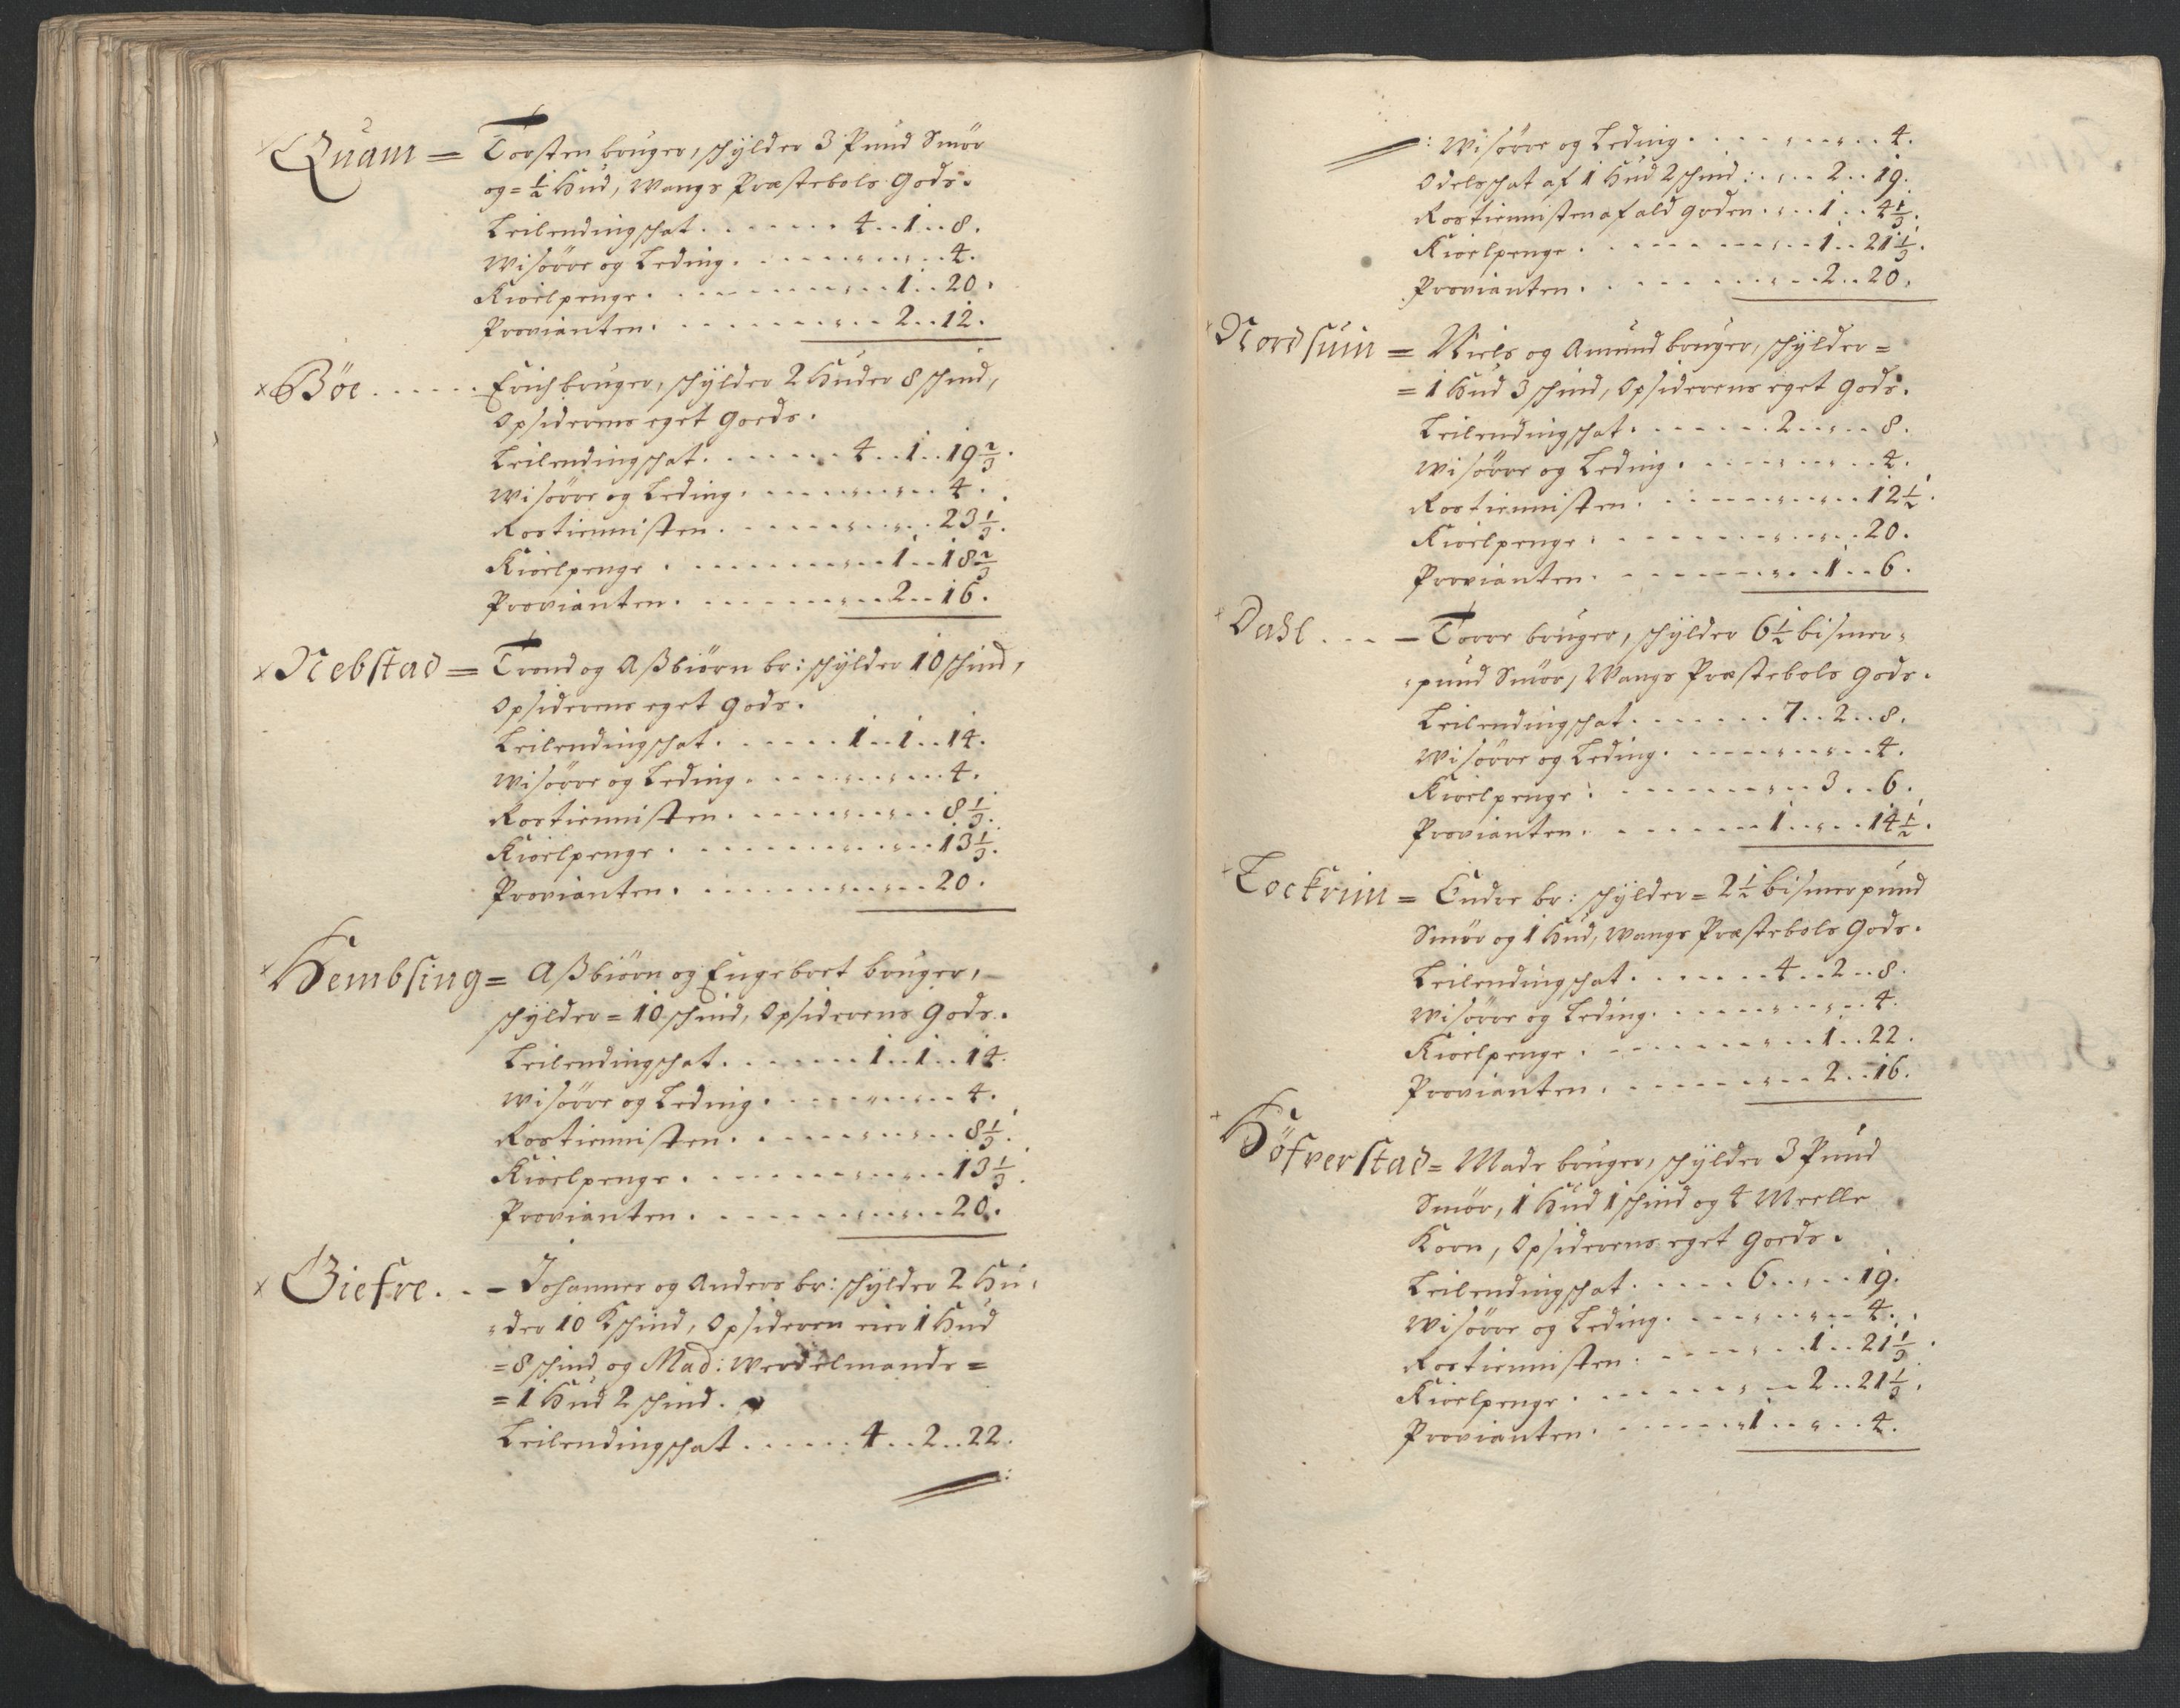 Quam = Torsten bruger, schÿlder 3 Pund Smör
og = ½ Hud, Wangs Præstebols Gods.
Leilendingschat . . . . . . . 4 . . 1 . . 8.
Wisörre og Leding . . . . . . „ . . „ . . 4.
Kioelpenge . . . . . . . . „ . . 1 . . 20.
Provianten . . . . . . . . „ . . 2 . . 12.
× Böe . . . . . Erich bruger, schÿlder 2 Huder 8 schind,
Opsiderens eget Goeds.
Leilendingschat . . . . . . . 4 . . 1 . . 19 2/3.
Wisörre og Leding . . . . . . „ . . „ . . 4.
Rostiennisten . . . . . . . „ . . „ . . 23 1/3.
Kioelpenge . . . . . . . . „ . . 1 . . 18 2/3
Provianten . . . . . . . . „ . . 2 . . 16.
× Nebstad = Trond og Aßbiörn br: schÿlder 10 schind,
Opsiderens eget Gods.
Leilendingschat . . . . . . 1 . . 1 . . 14.
Wisörre og Leding . . . . . . „ . . „ . . 4.
Rostiennisten . . . . . . . „ . . „ . . 8 1/3.
Kioelpenge . . . . . . . . „ . . „ . . 13 1/3.
Provianten . . . . . . . . „ . . „ . . 20.
× Hembsing = Aßbiörn og Engebret bruger,
schÿlder = 10 schind, Opsiderens Gods.
Leilendingschat . . . . . . . 1 . . 1 . . 14.
Wisörre og Leding . . . . . . „ . . „ . . 4.
Rostiennisten . . . . . . . „ . . „ . . 8 1/3.
Kioelpenge . . . . . . . . „ . . „ . . 13 1/3.
Provianten . . . . . . . . „ . . „ . . 20.
× Giefre . . – Johannes og Anders br: schÿlder 2 Hu-
der 10 Kschind, Opsideren eier 1 Hud
= 8 schind og Mad: Werdelmands =
= 1 Hud 2 schind.
Leilendingschat . . . . . . 4 . . 2 . . 22.
: Wisörre og Leding . . . . „ . . „ . . 4.
Odelsschat af 1 Hud 2 schind : . „ . . 2 . . 19.
Rostiennisten af ald Gorden . . „ . . 1 . . 4 1/3.
Kioelpenge . . . . . . . . „ . . 1 . . 21 1/3.
Provianten . . . . . . . . „ . . 2 . . 20.
× Nordsuin = Niels og Amund bruger, schÿlder =
= 1 Hud 3 schind, Opsiderens eget Gods.
Leilendingschat . . . . . . . 2 . . „ . . 8.
Wisörre og Leding . . . . . „ . . „ . . 4.
Rostiennisten . . . . . . . „ . . „ . . 12 ½.
Kioelpenge . . . . . . . . „ . . „ . . 20.
Provianten . . . . . . . . „ . . 1 . . 6.
× Dahl . . . – Torre bruger, schÿlder 6 ½ bismer-
pund Smör, Wangs Præstebols Gods.
Leilendingschat . . . . . . . 7 . . 2 . . 8.
Wisörre og Leding . . . . . „ . . „ . . 4.
Kioelpenge . . . . . . . . „ . . 3 . . 6.
Provianten . . . . . . . . 1 . . „ . . 14 ½.
× Lockrim = Gudre br: schÿlder = 2 ½ bismerpund
Smör og 1 Hud, Wangs Præstebols Gods.
Leilendingschat . . . . . . . 4 . . 2 . . 8.
Wisörre og Leding . . . . . „ . . „ . . 4.
Kioelpenge . . . . . . . . „ . . 1 . . 22.
Provianten . . . . . . . . „ . . 2 . . 16.
× Höfverstad = Mads bruger, schÿlder 3 Pund
Smör, 1 Hud 1 schind og 4 Meelle
Korn, Opsiderens eget Goeds.
Leilendingschat . . . . . 6 . . „ . . 19.
Wisörre og Leding . . . . „ . . „ . . 4.
Rostiennisten . . . . . . „ . . 1 . . 21 1/3.
Kioelpenge . . . . . . . „ . . 2 . . 21 1/3.
Provianten . . . . . . . 1 . . „ . . 4.